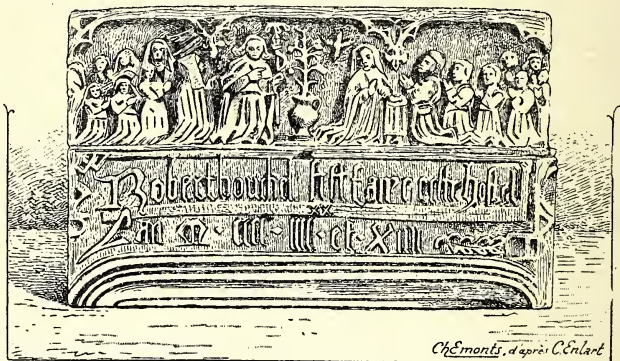 Robert bouchel fist faire ceste hostel
XX
Lan M · CCCC · IIII · et · XIII
ChEmonts, d'après C. Enlart